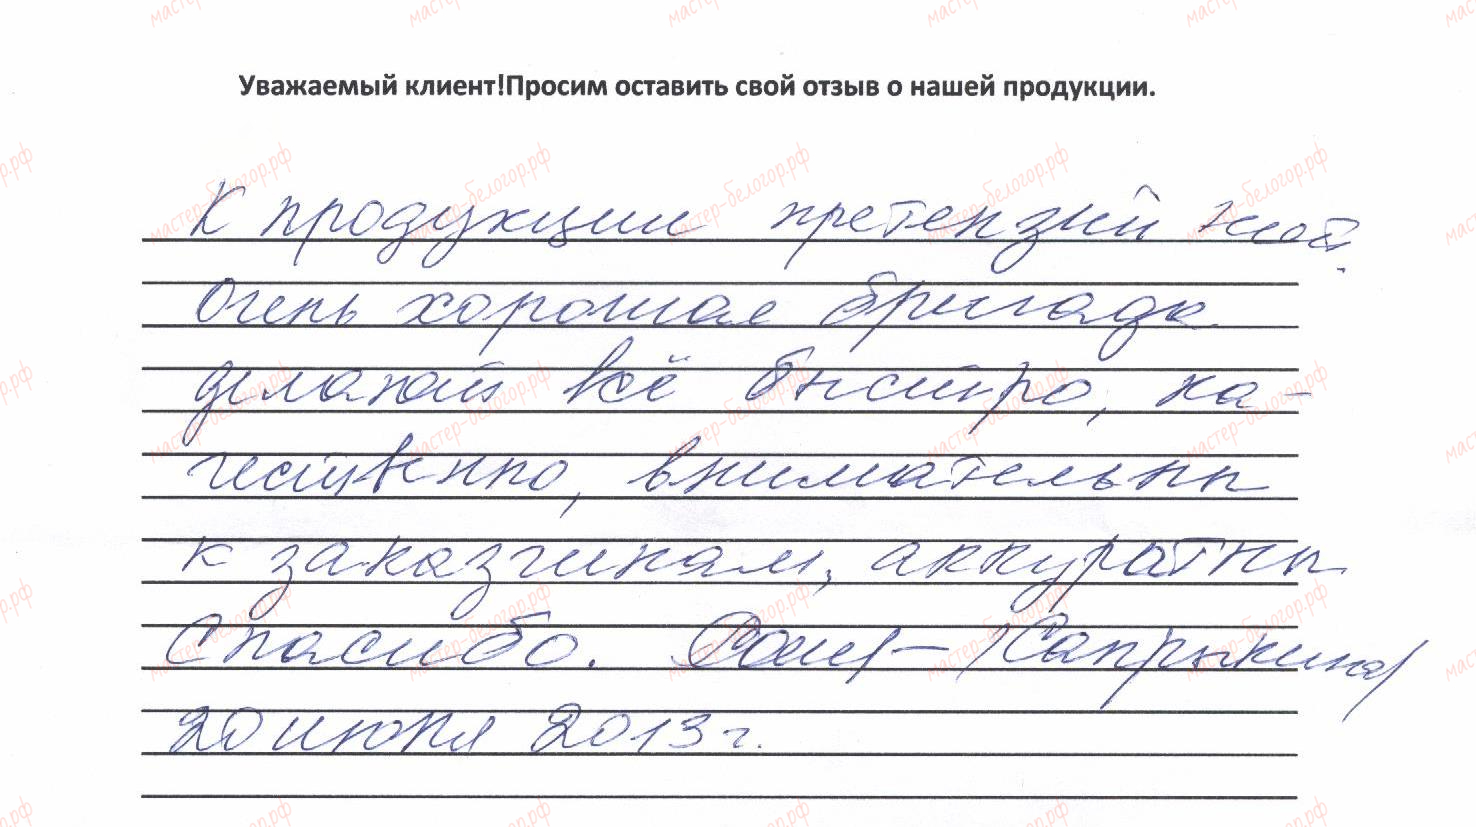 Уважаемый клиент!Просим оставить свой отзыв о нашей продукции.
К продукции претензий нет.
Очень хорошая бригада
делают всё быстро, ка-
чественно, внимательны
к заказчикам, аккуратны
Спасибо. /Сапрыкина/
20 июня 2013 г.
мастер-белогор.рф